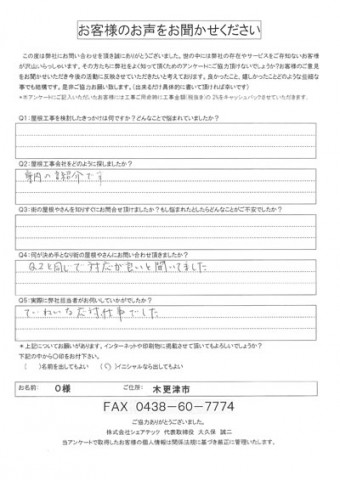 お客様のお声をお聞かせください
この度は弊社にお問い合わせを頂き誠にありがとうございました。世の中には弊社の存在やサービスをご存知ないお客様
が沢山いらっしゃいます。その方たちに弊社をよく知って頂くためのアンケートにご協力頂けないでしょうか？お客様のご意見
をお聞かせいただき今後の活動に反映させていただきたいと考えております。良かったこと、嬉しかったことどのような些細な
事でも結構です。是非ご協力お願い致します。（出来るだけ具体的に書いて頂ければ幸いです）
＊※アンケートにご記入いただいたお客様には工事ご用命時に工事金額(税抜き)の2%をキャッシュバックさせていただきます。
Q1：屋根工事を検討したきっかけは何ですか？どんなことで悩まれていましたか？
Q2：屋根工事会社をどのように探しましたか？
の紹介です
Q3：街の屋根やさんを知りすぐにお問合せ頂けましたか？もし悩まれたとしたらどんなことがご不安でしたか？
Q4：何が決め手となり街の屋根やさんにお問い合わせ頂きましたか？
Q2と同じで対応が良いと聞いてました
Q5：実際に弊社担当者がお伺いしていかがでしたか？
ていねいな応対仕事でした
＊上記についてお願いがあります。インターネットや印刷物に掲載させて頂いてもよろしいでしょうか？
下記の中から〇印をお付下さい。
（　）名前を出してもよい　（〇）イニシャルなら出してもよい
お名前：　O様　ご住所：　木更津市
FAX 0438-60-7774
ご協力ありがとうございました。
株式会社シェアテック 代表取締役 大久保 誠二
当アンケートで取得したお客様の個人情報は関係法規に基づき厳正に管理いたします。